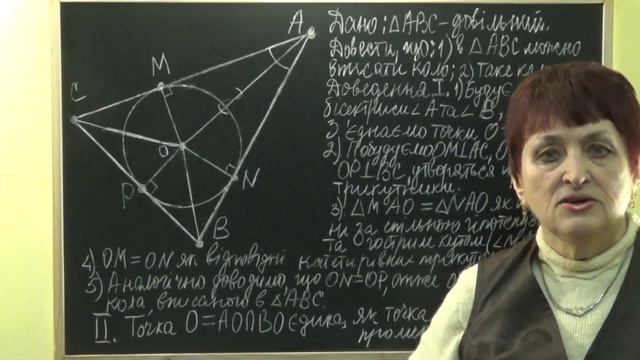 A
M
C
O
N
P
B
Дано: △ABC - довільний.
Довести, що: 1) в △ABC можна
вписати коло; 2) Таке
Доведення I. 1)
бісектриси ∠A та ∠B,
З'єднаємо точки O
2) Побудуємо OM⊥AC,
OP⊥BC, утворяться
трикутники.
3) △MAO = △NAO як
за спільною
та гострим кутом
4) OM = ON як відповідні катети рівних
5) Аналогічно доводимо, що ON=OP, отже
кола вписаного в △ABC
II. Точка O = AO∩BO єдина, як точка